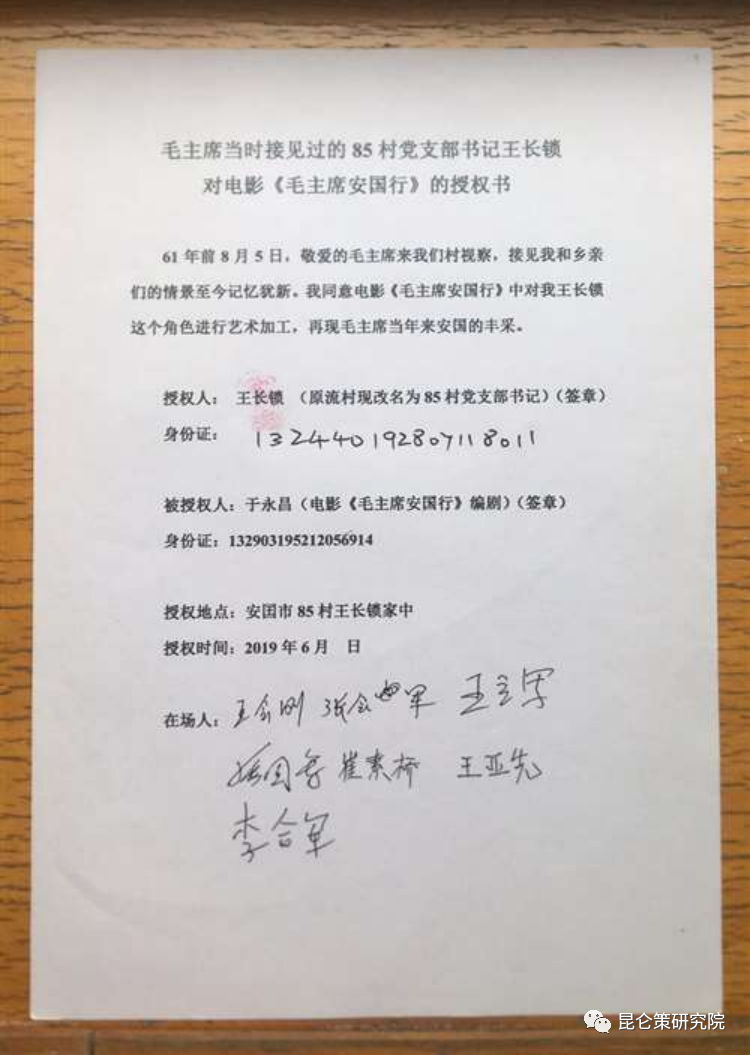 毛主席当时接见过的 85 村党支部书记王长锁
对电影《毛主席安国行》的授权书
61 年前 8 月 5 日，敬爱的毛主席来我们村视察，接见我和乡亲
们的情景至今记忆犹新。我同意电影《毛主席安国行》中对我王长锁
这个角色进行艺术加工，再现毛主席当年来安国的丰采。
授权人： 王长锁 （原流村现改名为 85 村党支部书记）（签章）
身份证： 132440192807118011
被授权人：于永昌（电影《毛主席安国行》编剧）（签章）
身份证：132903195212056914
授权地点：安国市 85 村王长锁家中
授权时间：2019 年 6 月 日
在场人：王会刚
崔素桥 王亚先
李合军
昆仑策研究院